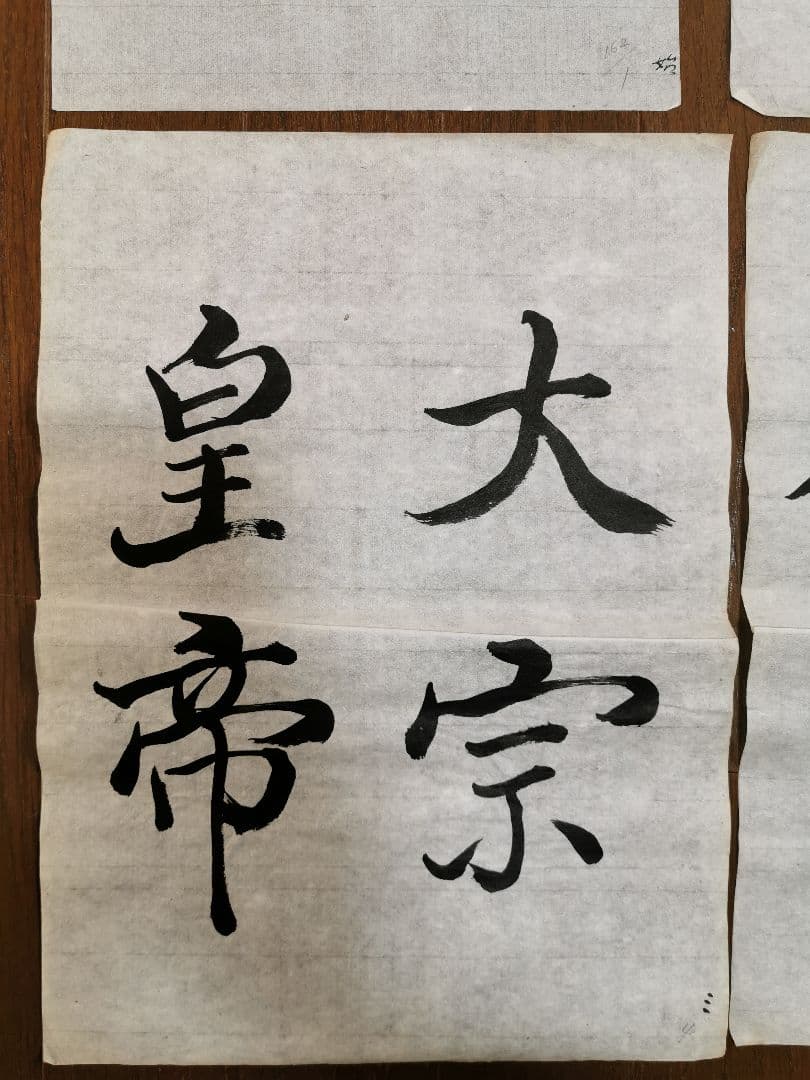 大宗
皇帝